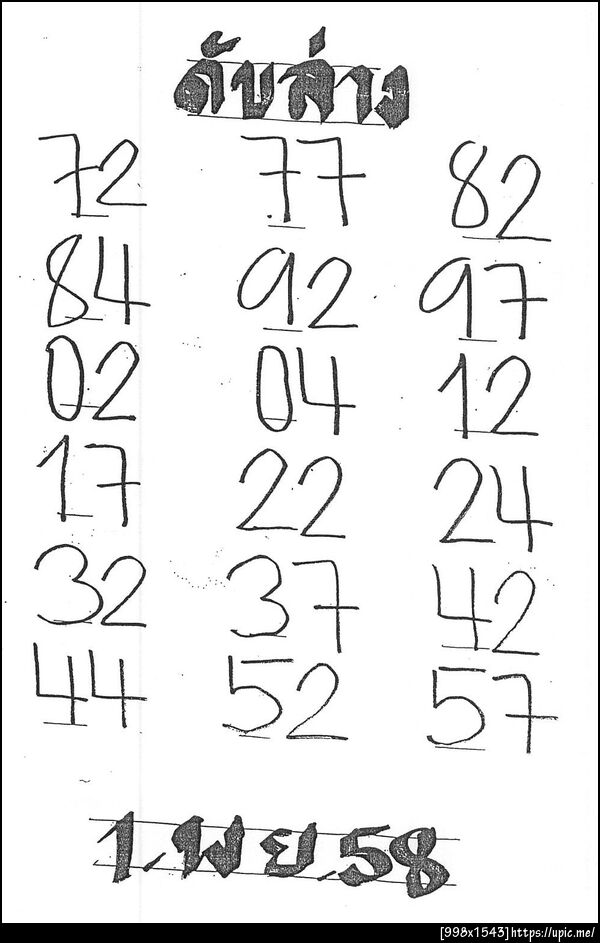 ดับล่าง
72 77 82
84 92 97
02 04 12
17 22 24
32 37 42
44 52 57
1.พย.58
[998x1543]https://upic.me/